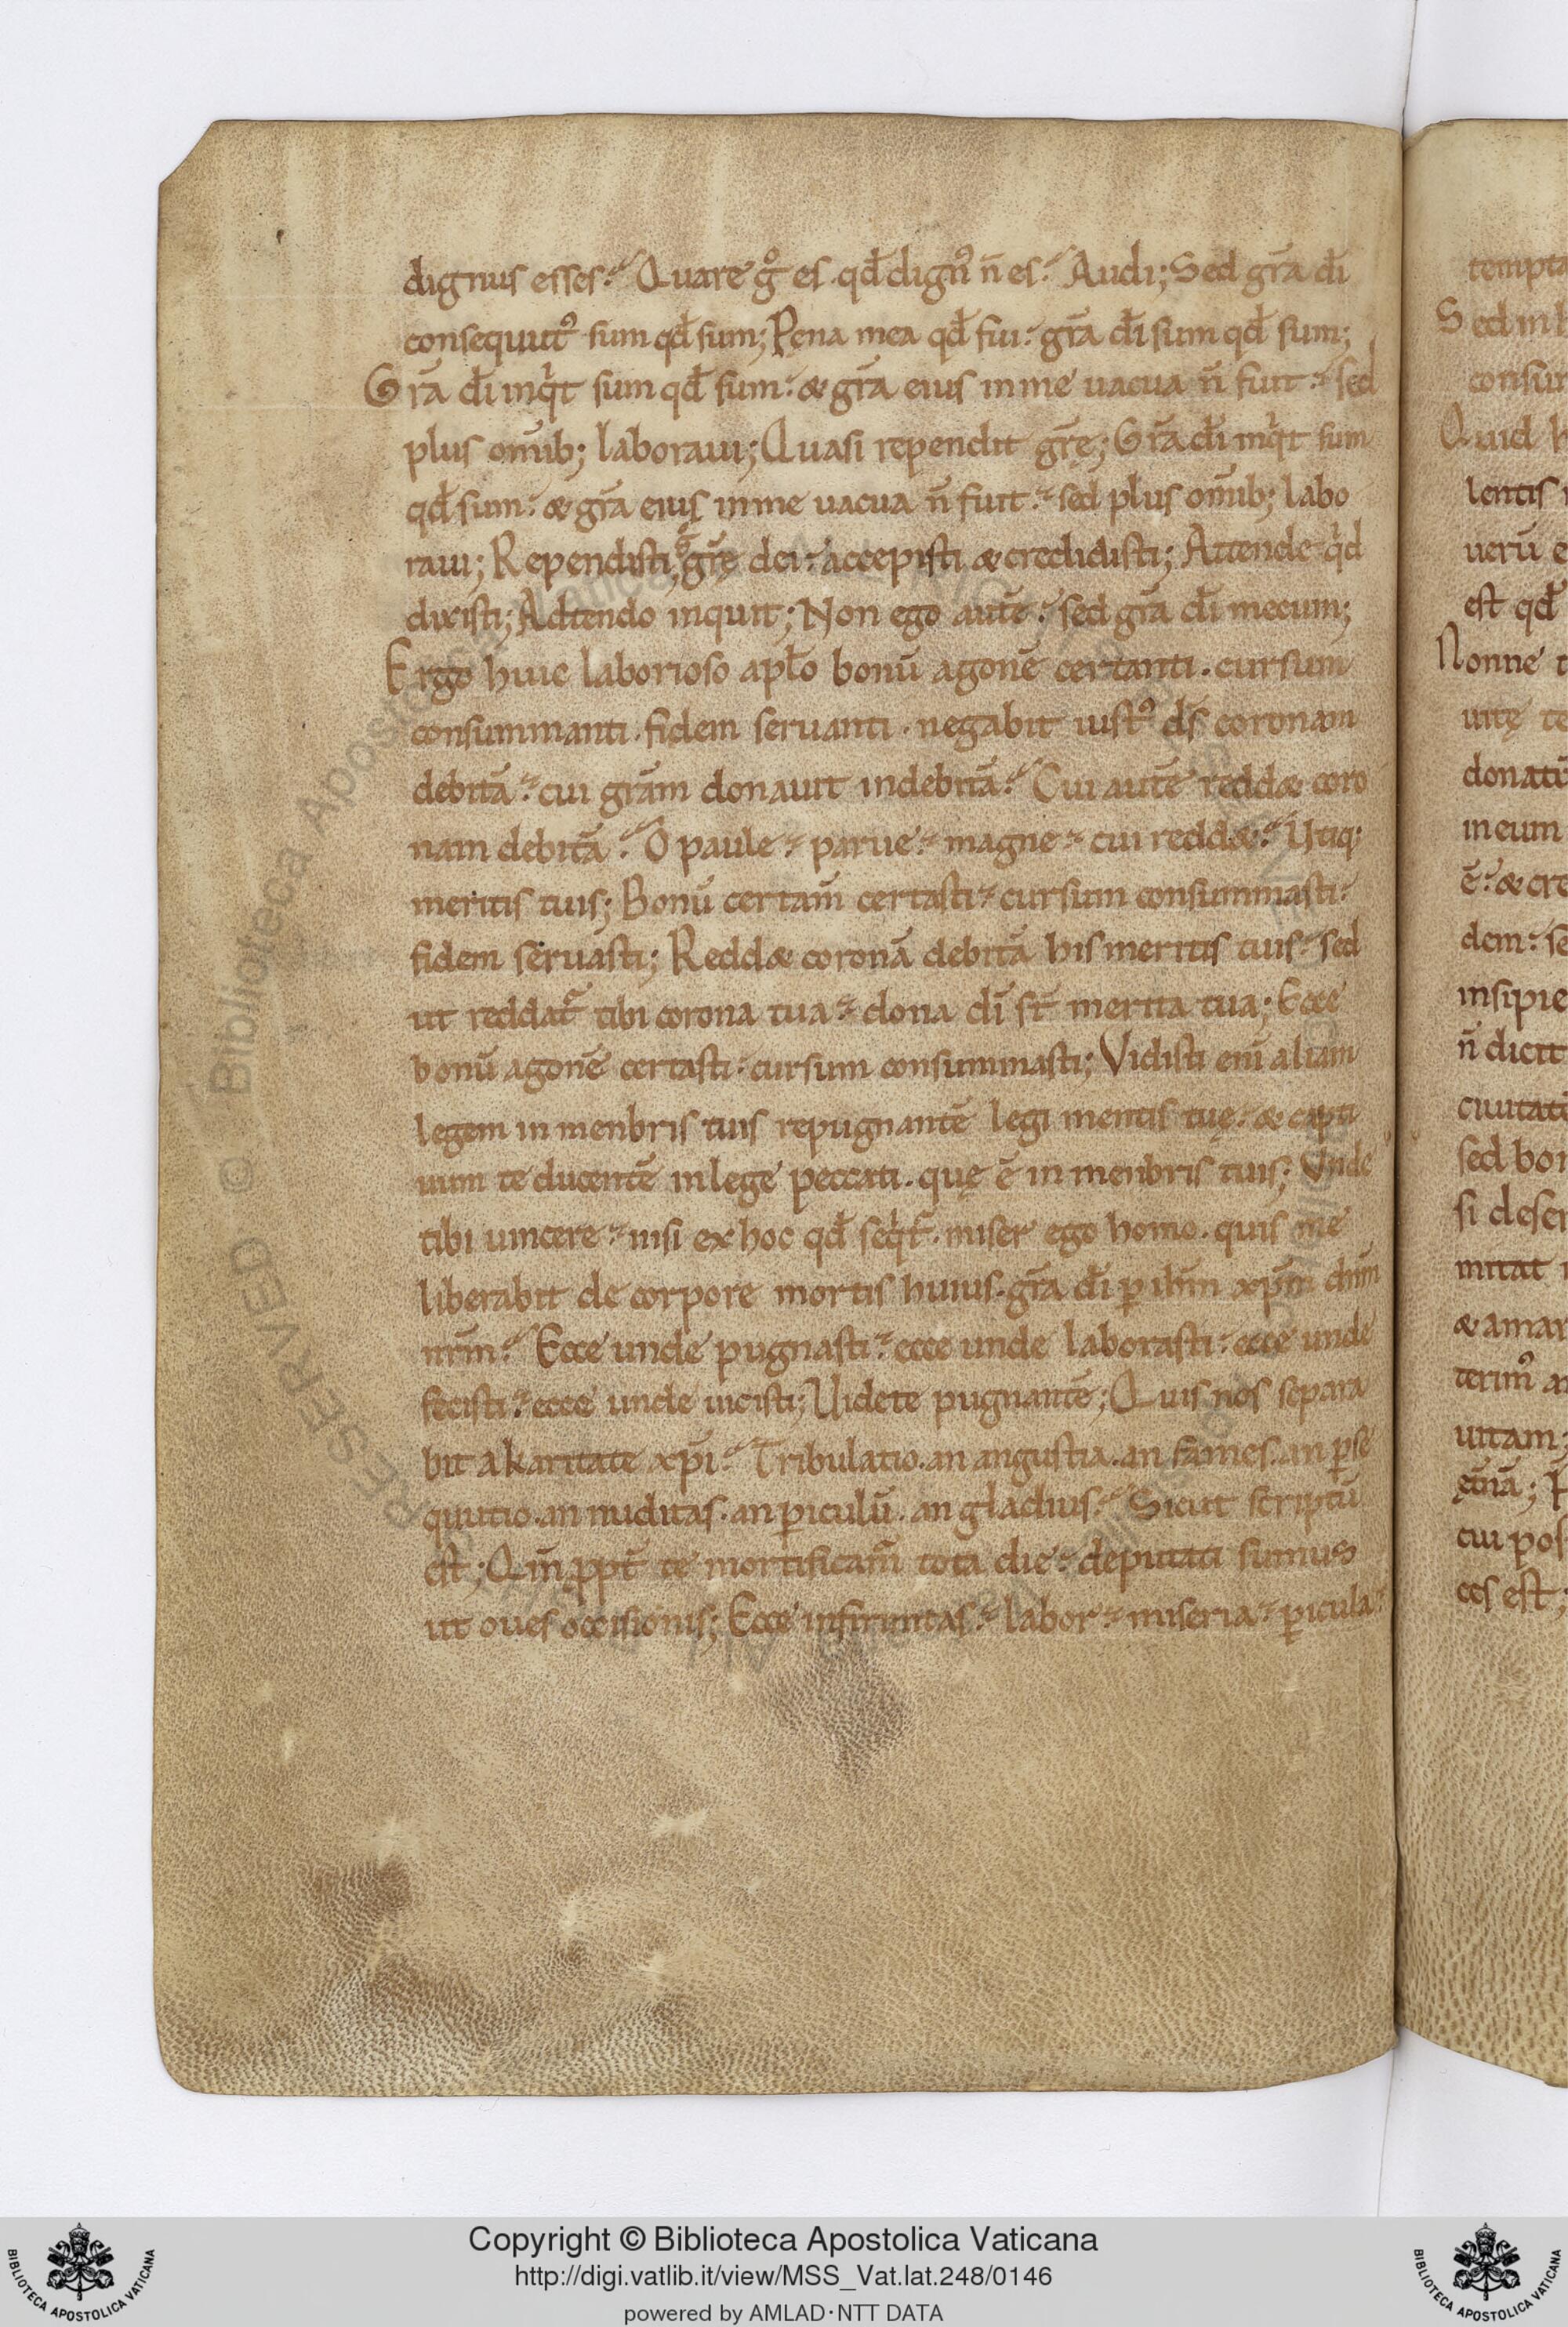 dignus esses? Quare gͦ es qđ dignꝰ n̄ es? Audi; Sed gr̄a dī
consequutꝰ sum qđ sum; Pęna mea qđ fui. gr̄a dī sum qđ sum;
Gr̄a dī inqͥt sum qđ sum. & gr̄a eius in me uacua n̄ fuit. sed
plus om̄ib; laboraui; Quasi rependit gr̄ę; Gr̄a dī inqͥt sum
qđ sum. & gr̄a eius in me uacua n̄ fuit. sed plus om̄ib; labo
raui; Rependisti gͦ gr̄ę dei. accepisti & credidisti; Attende qͥd
dixisti; Adtendo inquit; Non ego autē. sed gr̄a dī mecum;
Ergo huic laborioso apło bonū agonē certanti. cursum
consummanti. fidem seruanti. negabit iustꝰ dś coronam
debitā. cui gr̄am donauit indebitā? Cui autē redd& coro
nam debitā? O paule. parue. magne. cui redd&? Utiq;
meritis tuis; Bonū certam̄ certasti. cursum consummasti.
fidem seruasti; Redd& coronā debitā his meritis tuis. sed
ut reddat᷑ tibi corona tua. dona dī st̄ merita tua; Ecce
bonū agonē certasti. cursum consummasti; Vidisti enī aliam
legem in menbris tuis repugnantē legi mentis tuę. & capti
uum te ducentē in lege peccati. quę ē in menbris tuis; Unde
tibi uincere. nisi ex hoc qđ seqͥt᷑. miser ego homo. quis me
liberabit de corpore mortis huius. gr̄a dī ꝑ ih̄m xp̄m dn̄m
nr̄m? Ecce unde pugnasti. ecce unde laborasti. ecce unde
fecisti. ecce unde uicisti; Uidete pugnantē; Quis nos separa
bit a karitate xp̄i? Tribulatio. an angustia. an fames. an ꝑse
quutio. an nuditas. an ꝑiculū. an gladius? Sicut scriptū
est; Qm̄ ꝓpt̄ te mortificam̄ tota die. deputati sumus
ut oues occisionis; Ecce infirmitas. labor. miseria. ꝑicula.
tempta
Sed in
consu
Quid
lentis
uerū e
est qđ
Nonne t
uitę
donatū
in eum
ē. & cre
dem. se
insipie
n̄ dicit
ciuitat
sed bo
si desc
mitat
& amar
terim̄ a
uitam;
ęt̄nā;
cui pos
ces est;
Copyright © Biblioteca Apostolica Vaticana
http://digi.vatlib.it/view/MSS_Vat.lat.248/0146
powered by AMLAD·NTT DATA
BIBLIOTECA APOSTOLICA VATICANA
BIBLIOTECA APOSTOLICA VATICANA